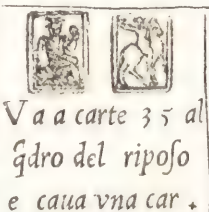 Va a carte 35 al
q̃dro del ripoſo
e caua vna car .